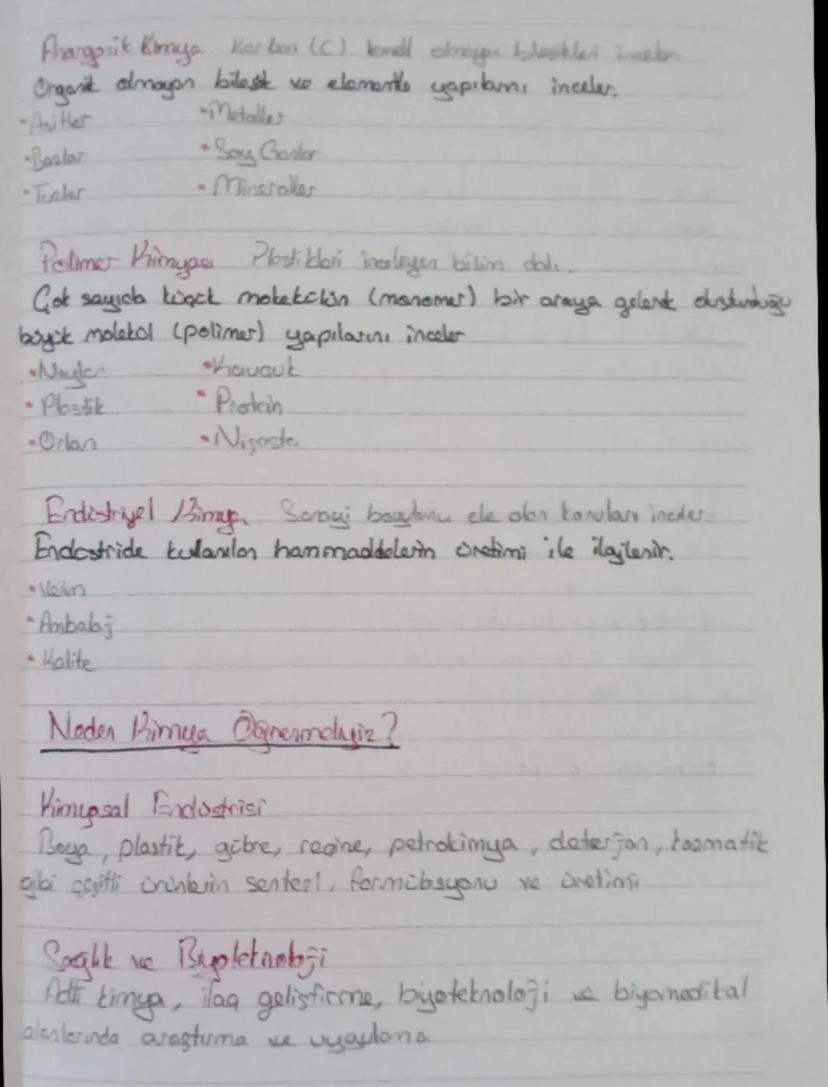 Anargonik Kimya Karbon (C) temelli olmayan bileşikleri inceler.
Organik olmayan bileşik ve elementle yapılarını inceler.
• Asitler • Metaller
• Bazlar • Soy Gazlar
• Tuzlar • Mineraller
Polimer Kimyası Plastikleri inceleyen bilim dalı.
Çok sayıda küçük molekülün (monomer) bir araya gelerek oluşturduğu
büyük molekül (polimer) yapılarını inceler
• Naylon • Kauçuk
• Plastik • Protein
• Orlon • Nişasta
Endüstriyel Kimya Sanayi boyutunu ele alan konuları inceler.
Endüstride kullanılan hammaddelerin üretimi ile ilgilenir.
• Verim
• Ambalaj
• Kalite
Neden Kimya Öğrenmeliyiz?
Kimyasal Endüstrisi
Boya, plastik, gübre, reçine, petrokimya, deterjan, kozmatik
gibi çeşitli ürünlerin sentezi, formülasyonu ve üretimi
Sağlık ve Biyoteknoloji
Adli kimya, ilaç geliştirme, biyoteknoloji ve biyomedikal
alanlarında araştırma ve uygulama